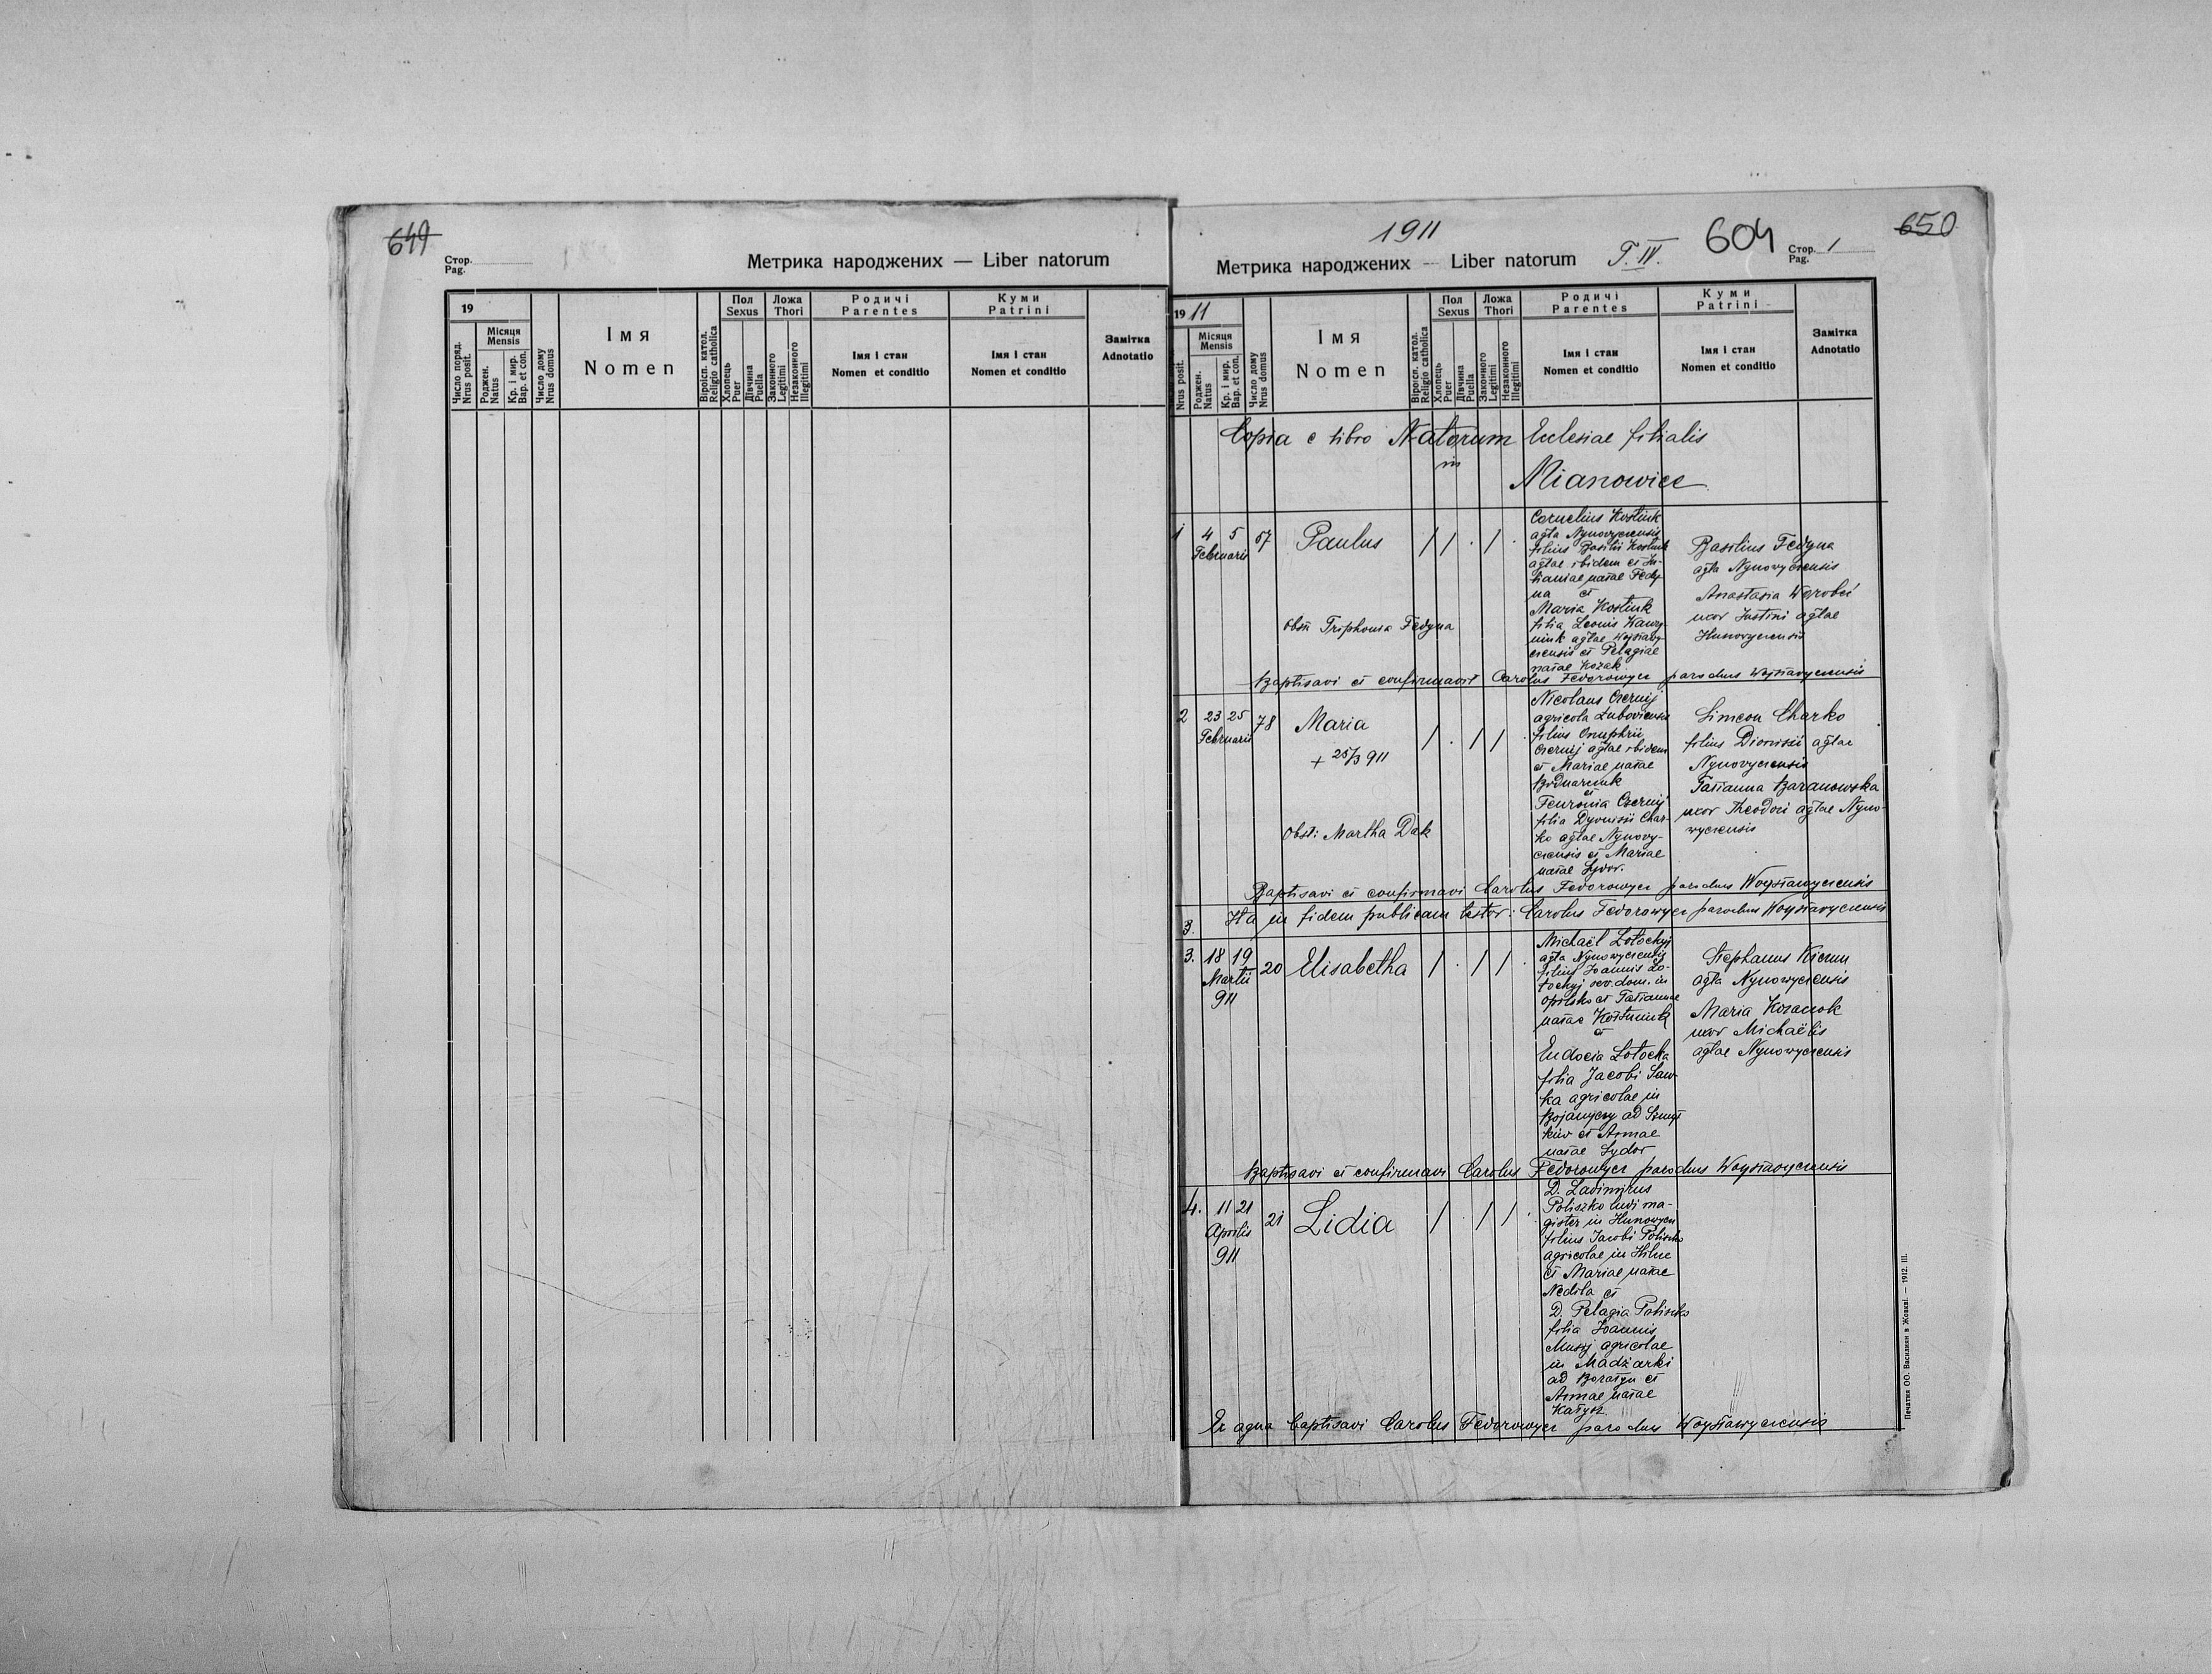 649
Стор.
Pag.
Метрика народжених — Liber natorum
19
Число поряд.
Nrus posit.
Місяця
Mensis
Роджен.
Natus
Кр. і мир.
Bap. et con.
Число дому
Nrus domus
Імя
Nomen
Віроісп. катол.
Religio catholica
Пол
Sexus
Хлопець
Puer
Дівчина
Puella
Ложа
Thori
Законного
Legitimi
Незаконного
Illegitimi
Родичі
Parentes
Імя і стан
Nomen et conditio
Куми
Patrini
Імя і стан
Nomen et conditio
Замітка
Adnotatio
1911
Метрика народжених — Liber natorum T. IV.
604
Стор.
Pag. 1
650
19 11
Nrus posit.
Місяця
Mensis
Роджен.
Natus
Кр. і мир.
Bap. et con.
Число дому
Nrus domus
Імя
Nomen
Віроісп. катол.
Religio catholica
Пол
Sexus
Хлопець
Puer
Дівчина
Puella
Ложа
Thori
Законного
Legitimi
Незаконного
Illegitimi
Родичі
Parentes
Імя і стан
Nomen et conditio
Куми
Patrini
Імя і стан
Nomen et conditio
Замітка
Adnotatio
Copia e libro Natorum Ecclesiae filialis
in
Mianowice
1 4 5 67 Paulus / / . / .
Februarii
Cornelius Kostiuk
agla Nynovycensis
filius Basilii Kostiuk
aglae ibidem et
natae Fedy-
na et
Maria Kostiuk
filia Leonis
aglae
et Pelagiae
natae Kozak
Basilius Fedyna
agla Nynovycensis
Anastasia Worobei
uxor Justini aglae
Obst: Fedyna
Baptisavi et confirmavi Carolus Fedorowycz parochus Woyslavycensis
2 23 25 78 Maria / . / / .
Februarii
+ 25/3 911
Nicolaus Czernij
agricola
filius Onuphrii
Czernij aglae ibidem
et Mariae natae
Bodnarczuk
et
Feuronia Czernij
filia Dyonisii Char-
ko aglae Nynovy-
censis et Mariae
natae Sydor.
Simeon Charko
filius Dionisii aglae
Nynovycensis
Tatianna Baranowska
uxor Theodori aglae Nyno-
wycensis
Obst: Martha Dak
Baptisavi et confirmavi Carolus Fedorowycz parochus Woyslawycensis
3. Ita in fidem publicam testor: Carolus Fedorowycz parochus Woyslavycensis
3. 18 19 20 Elisabetha / . / / .
Martii
911
Michaël Lotockyj
agla Nynowycensis
filius Joannis Lo-
tockyj in
Opilsko et Tatiannae
natae
et
Eudocia Lotocka
filia Jacobi Saw-
ka agricolae in
Bojanyczy ad
et Annae
natae Sydor
Stephanus
agla Nynowycensis
Maria
uxor Michaëlis
aglae Nynowycensis
Baptisavi et confirmavi Carolus Fedorowycz parochus Woyslavycensis
4. 11 21 21 Lidia / . / / .
Aprilis
911
D. Ladimirus
Poliszko ludi ma-
gister in
filius Jacobi Poliszko
agricolae in
et Mariae natae
Nedila et
D. Pelagia Poliszko
filia Joannis
agricolae
in Madziarki
ad et
Annae natae
Ex aqua baptisavi Carolus Fedorowycz parochus Woyslawycensis
Печатня ОО. Василиян в Жовкві. — 1912. III.